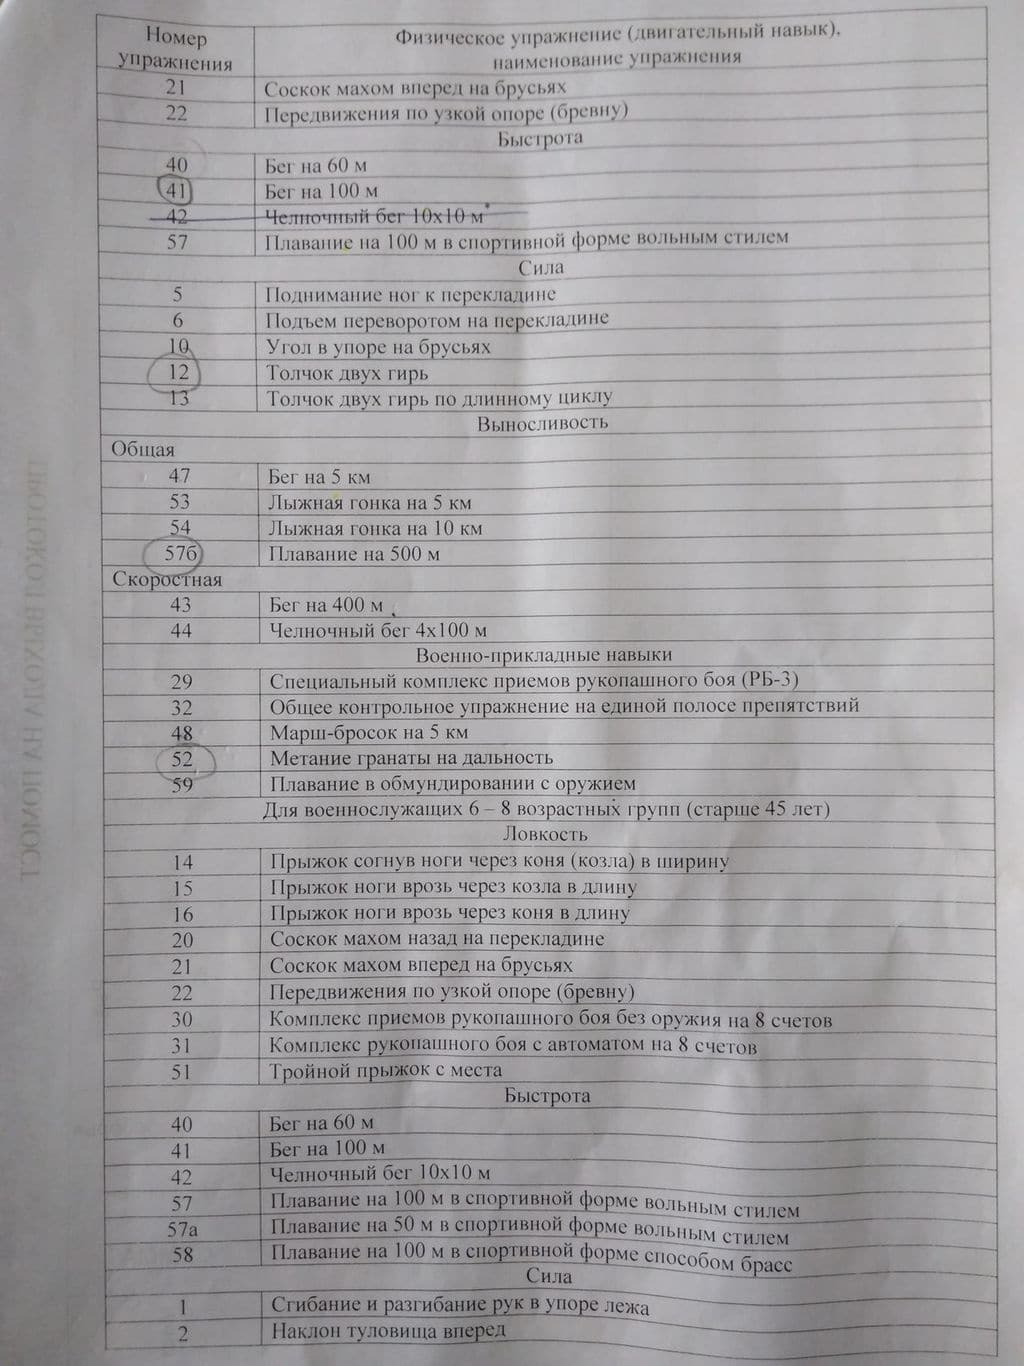 Номер упражнения Физическое упражнение (двигательный навык), наименование упражнения
21 Соскок махом вперед на брусьях
22 Передвижения по узкой опоре (бревну)
Быстрота
40 Бег на 60 м
41 Бег на 100 м
42 Челночный бег 10х10 м
57 Плавание на 100 м в спортивной форме вольным стилем
Сила
5 Поднимание ног к перекладине
6 Подъем переворотом на перекладине
10 Угол в упоре на брусьях
12 Толчок двух гирь
13 Толчок двух гирь по длинному циклу
Выносливость
Общая
47 Бег на 5 км
53 Лыжная гонка на 5 км
54 Лыжная гонка на 10 км
57б Плавание на 500 м
Скоростная
43 Бег на 400 м
44 Челночный бег 4х100 м
Военно-прикладные навыки
29 Специальный комплекс приемов рукопашного боя (РБ-3)
32 Общее контрольное упражнение на единой полосе препятствий
48 Марш-бросок на 5 км
52 Метание гранаты на дальность
59 Плавание в обмундировании с оружием
Для военнослужащих 6 – 8 возрастных групп (старше 45 лет)
Ловкость
14 Прыжок согнув ноги через коня (козла) в ширину
15 Прыжок ноги врозь через козла в длину
16 Прыжок ноги врозь через коня в длину
20 Соскок махом назад на перекладине
21 Соскок махом вперед на брусьях
22 Передвижения по узкой опоре (бревну)
30 Комплекс приемов рукопашного боя без оружия на 8 счетов
31 Комплекс рукопашного боя с автоматом на 8 счетов
51 Тройной прыжок с места
Быстрота
40 Бег на 60 м
41 Бег на 100 м
42 Челночный бег 10х10 м
57 Плавание на 100 м в спортивной форме вольным стилем
57а Плавание на 50 м в спортивной форме вольным стилем
58 Плавание на 100 м в спортивной форме способом брасс
Сила
1 Сгибание и разгибание рук в упоре лежа
2 Наклон туловища вперед
ПРОТОКОЛ ВЫХОДА НА ПОМОСТ